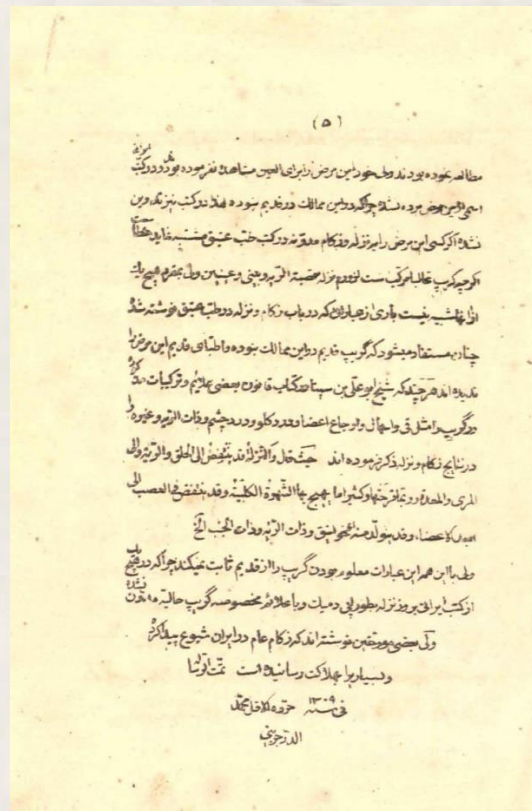 (۵)
مطالعه نموده بودند ولی خود این مرض را برای العین مشاهده نفرموده بودند و در کتب
اسمی از این مرض برده نشده چراکه در این ممالک در قدیم نبوده لهذا در کتب نیز تدوین
نشده اگر کسی این مرض را به نزله و زکام مدونه در کتب طب عتیق مشتبه نماید خطاست
اگرچه گریپ غالبا مرکب است از ورم نزله قصبة الریه و بینی و عینین ولی بهیچ یک
از آنها شبیه نیست باری از عباراتی که در باب زکام و نزله در طب عتیق نوشته شده
چنان مستفاد میشود که گریپ قدیم در این ممالک نبوده و اطبای قدیم این مرض را
ندیده اند هرچند که شیخ ابو علی بن سینا در کتاب قانون بعضی علایم و ترکیبات
در گریپ را مثل قی و اسهال و اوجاع اعضا و درد گلو و درد چشم و ذات الریه و غیره را
در نتایج زکام و نزله ذکر فرموده اند حیث قال و النزلة قد تنفض الی الحلق و الریة و الی
المری و المعدة و کثیرا ما یهیج بها الشهوة الکلبیة و قد تنفض فی العصب الی
الاعضاء و قد یتولد منه و ذات الریة و ذات الجنب الخ
ولی با این همه این عبارات معلوم بودن گریپ را از قدیم ثابت نمیکند چراکه در هیچ یک
از کتب ایرانی بروز نزله بطور اپی دمیک و با علائم مخصوصه گریپ حالیه
ولی بعضی مورخین نوشته اند که زکام عام در ایران شیوع پیدا کرد
و بسیار را بهلاکت رسانیده است تمت
فی سنه ۱۳۰۹ حرره الاقل محمد